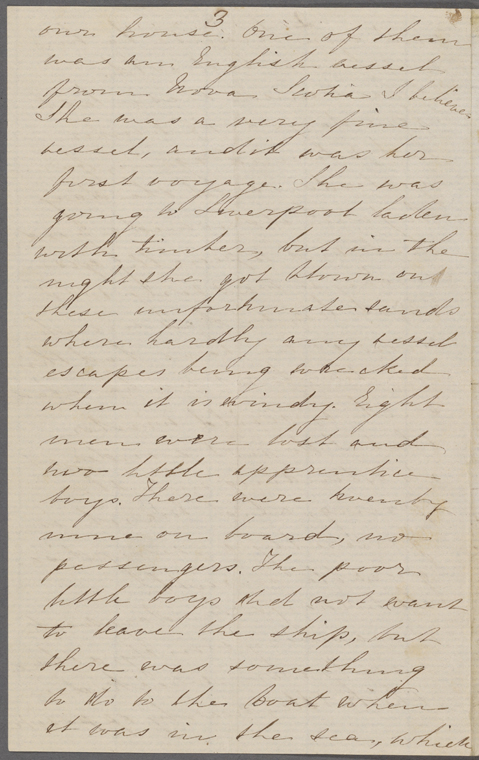 3
our house. One of them
was an English vessel
from Nova Scotia I believe.
She was a very fine
vessel, and it was her
first voyage. She was
going to Liverpool laden
with timber, but in the
night she got blown on
these unfortunate sands
where hardly any vessel
escapes being wrecked
when it is windy. Eight
men were lost and
two little apprentice
boys. There were twenty
nine on board, no
passengers. The poor
little boys did not want
to leave the ship, but
there was something
to do to the boat when
it was in the sea, which